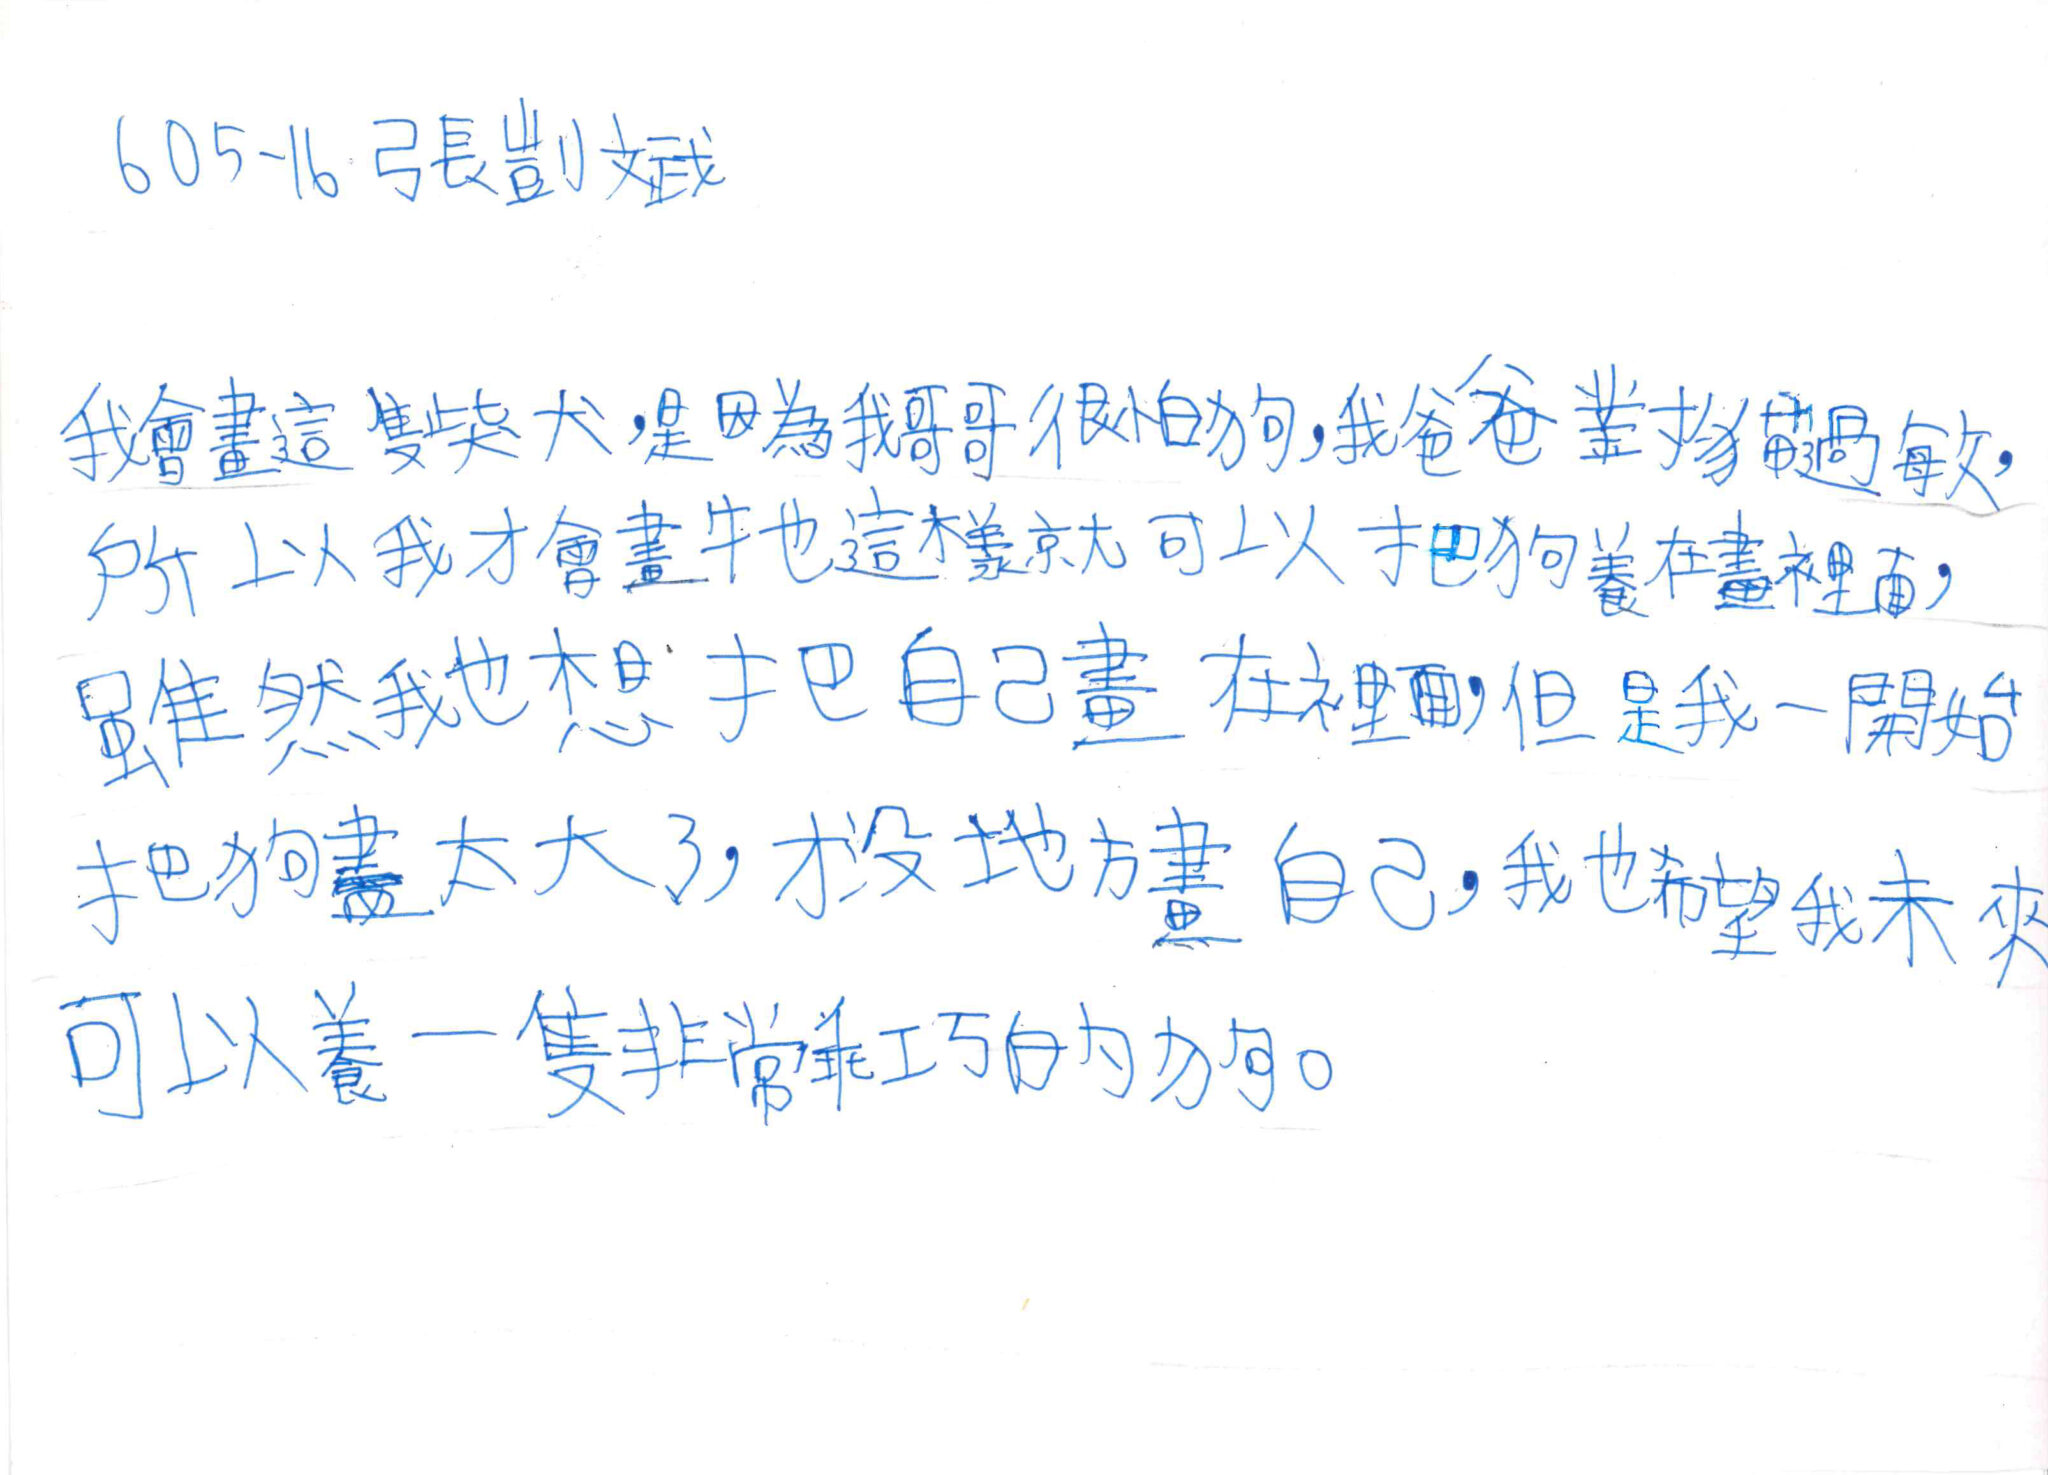 605-16 張剴斌
我會畫這隻柴犬,是因為我哥哥很怕狗,我爸爸對過敏,
所以我才會畫牠這樣就可以把狗養在畫裡面,
雖然我也想把自己畫在裡面,但是我一開始
把狗畫太大了,才沒地方畫自己,我也希望我未來
可以養一隻非常乖巧的狗。